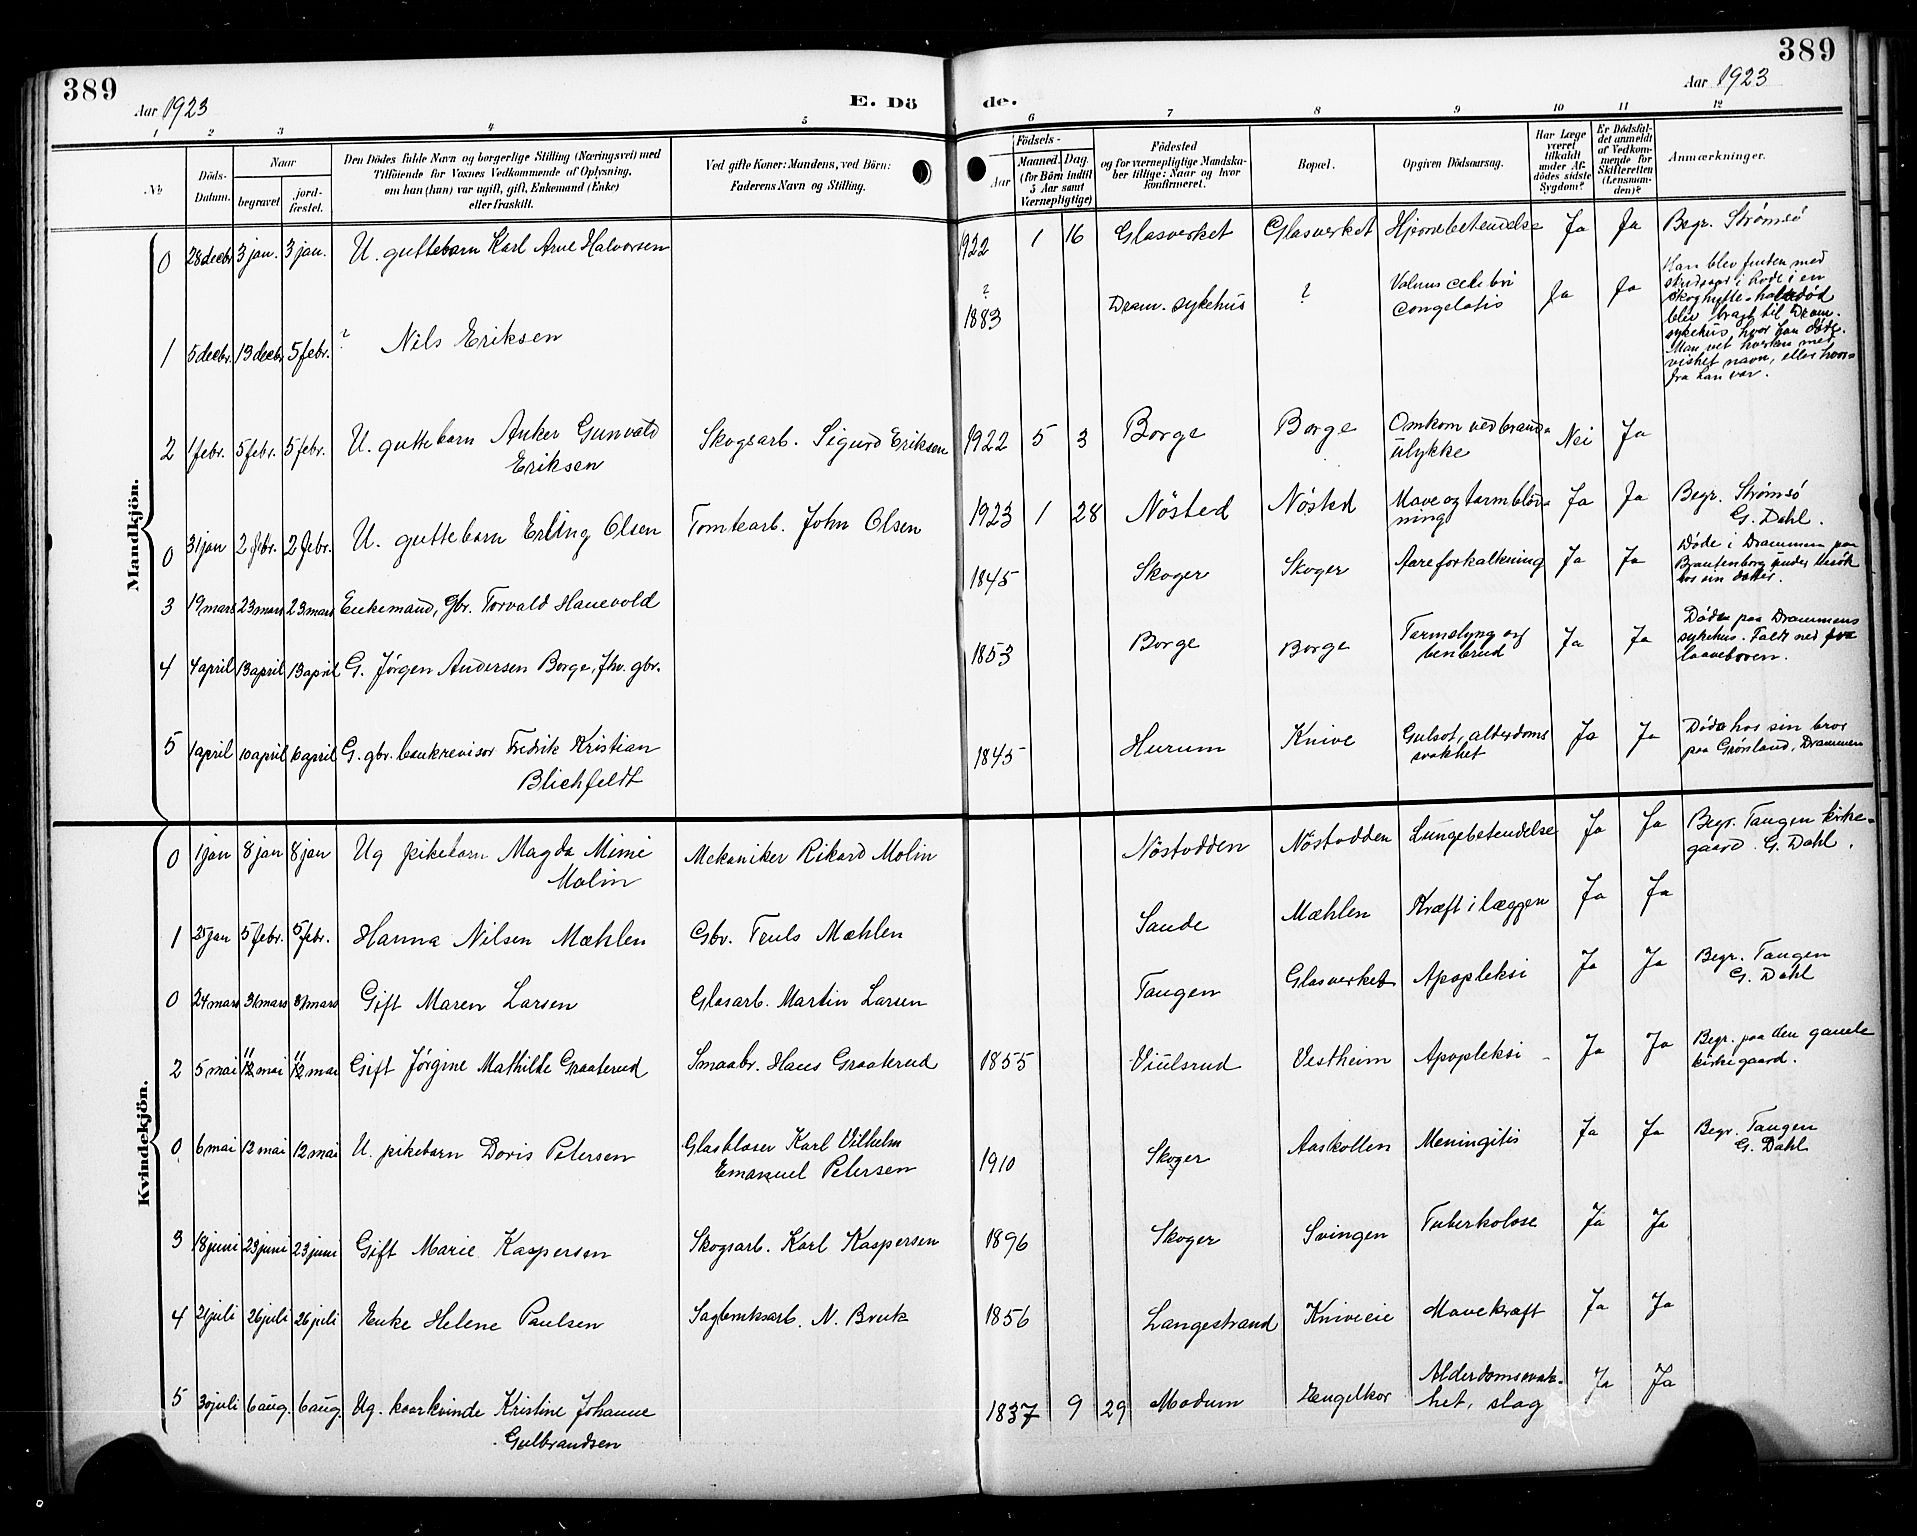 389
389
Aar 1923
E. Dö
de.
Aar 1923
1 2 3 4 5 6 7 8 9 10 11 12
No
Döds-
Datum.
Naar
begravet
jord-
fæstet.
Den Dödes fulde Navn og borgerlige Stilling (Næringsvei) med
Tilföiende for Voxnes Vedkommende af Oplysning,
om han (hun) var ugift, gift, Enkemand (Enke)
eller fraskilt.
Ved gifte Koner: Mandens, ved Börn:
Faderens Navn og Stilling.
Födsels-
Aar
Maaned. Dag.
(for Börn indtil
5 Aar samt
Værnepligtige)
Födested
og for værnepligtige Mandska-
ber tillige: Naar og hvor
konfirmeret.
Bopæl.
Opgiven Dödsaarsag.
Har Læge
været
tilkaldt
under Af-
dödes sidste
Sygdom?
Er Dödsfal-
det anmeldt
af Vedkom-
mende for
Skifteretten
(Lensman-
den)?
Anmærkninger.
Mandkjön.
0 28 decbr. 3 jan. 3 jan. U. guttebarn Karl Arne Halvorsen 1922 1 16 Glasverket Glasverket Hjernebetendelse Ja Ja Begr. Strømsö
1 5 decbr. 13 decbr. 5 febr. ? Nils Eriksen ? 1883 Dram. sykehus ? congelatis Ja Ja
Han blev funden med
skudsaar i hode i en
skoghytte halvdöd
blev bragt til Dram.
sykehus, hvor han döde.
Man vet hverken med
vished navn, eller hvor-
fra han var.
2 1 febr. 5 febr. 5 febr. U. guttebarn Anker Gunvald
Eriksen
Skogsarb. Sigurd Eriksen 1922 5 3 Borge Borge Omkom ved brand-
ulykke
Nei Ja
0 31 jan 2 febr. 2 febr. U. guttebarn Erling Olsen Tomtearb. John Olsen 1923 1 28 Nösted Nösted Mave og tarmblöd-
ning
Ja Ja Begr. Strømsö
G. Dahl.
3 19 mars 23 mars 23 mars Enkemand, gbr. Torvald Hanevold 1845 Skoger Skoger Aareforkalkning Ja Ja
Döde i Drammen paa
Brantenborg under besök
hos sin datter.
4 4 april 13 april 13 april G. Jørgen Andersen Borge, fhv. gbr. 1853 Borge Borge Tarmslyng og
benbrud
Ja Ja
Döde paa Drammens
sykehus. Faldt ned fra
laavebroen.
5 1 april 10 april 10 april G. gbr. bankrevisor Fredrik Kristian
Blichfeldt
1845 Hurum Knive Gulsot, alderdoms
svakhet
Ja Ja Döde hos sin bror
paa Grønland, Drammen
Kvindekjön.
0 1 jan 8 jan 8 jan Ug pikebarn Magda Mimi
Molin
Mekaniker Rikard Molin Nöstodden Nöstodden Lungebetendelse Ja Ja Begr. Tangen kirke-
gaard. G. Dahl.
1 25 jan 5 febr. 5 febr. Hanna Nilsen Mæhlen Gbr. Truls Mæhlen Sande Mæhlen Kræft i læggen Ja Ja
0 24 mars 31 mars 31 mars Gift Maren Larsen Glasarb. Martin Larsen Tangen Glasverket Apopleksi Ja Ja Begr. Tangen
G. Dahl
2 5 mai 11 12 mai 11 12 mai Gift Jørgine Mathilde Graaterud Smaabr. Hans Graaterud 1855 Viulsrud Vestheim Apopleksi - Ja Ja Begr. paa den gamle
kirkegaard.
0 6 mai 12 mai 12 mai U. pikebarn Doris Petersen Glasblaser Karl Vilhelm
Emanuel Petersen
1910 Skoger Aaskollen Meningitis Ja Ja Begr. Tangen
G. Dahl
3 18 juni 23 juni 23 juni Gift Marie Kaspersen Skogsarb. Karl Kaspersen 1896 Skoger Svingen Tuberkolose Ja Ja
4 21 juli 26 juli 26 juli Enke Helene Paulsen Sagbruksarb. N. Bruk 1856 Langestrand Kniveeie Mavekræft Ja Ja
5 30 juli 6 aug. 6 aug. Ug. kaarkvinde Kristine Johanne
Gulbrandsen
1837 9 29 Modum Hengelkor Alderdomssvak-
het, slag
Ja Ja